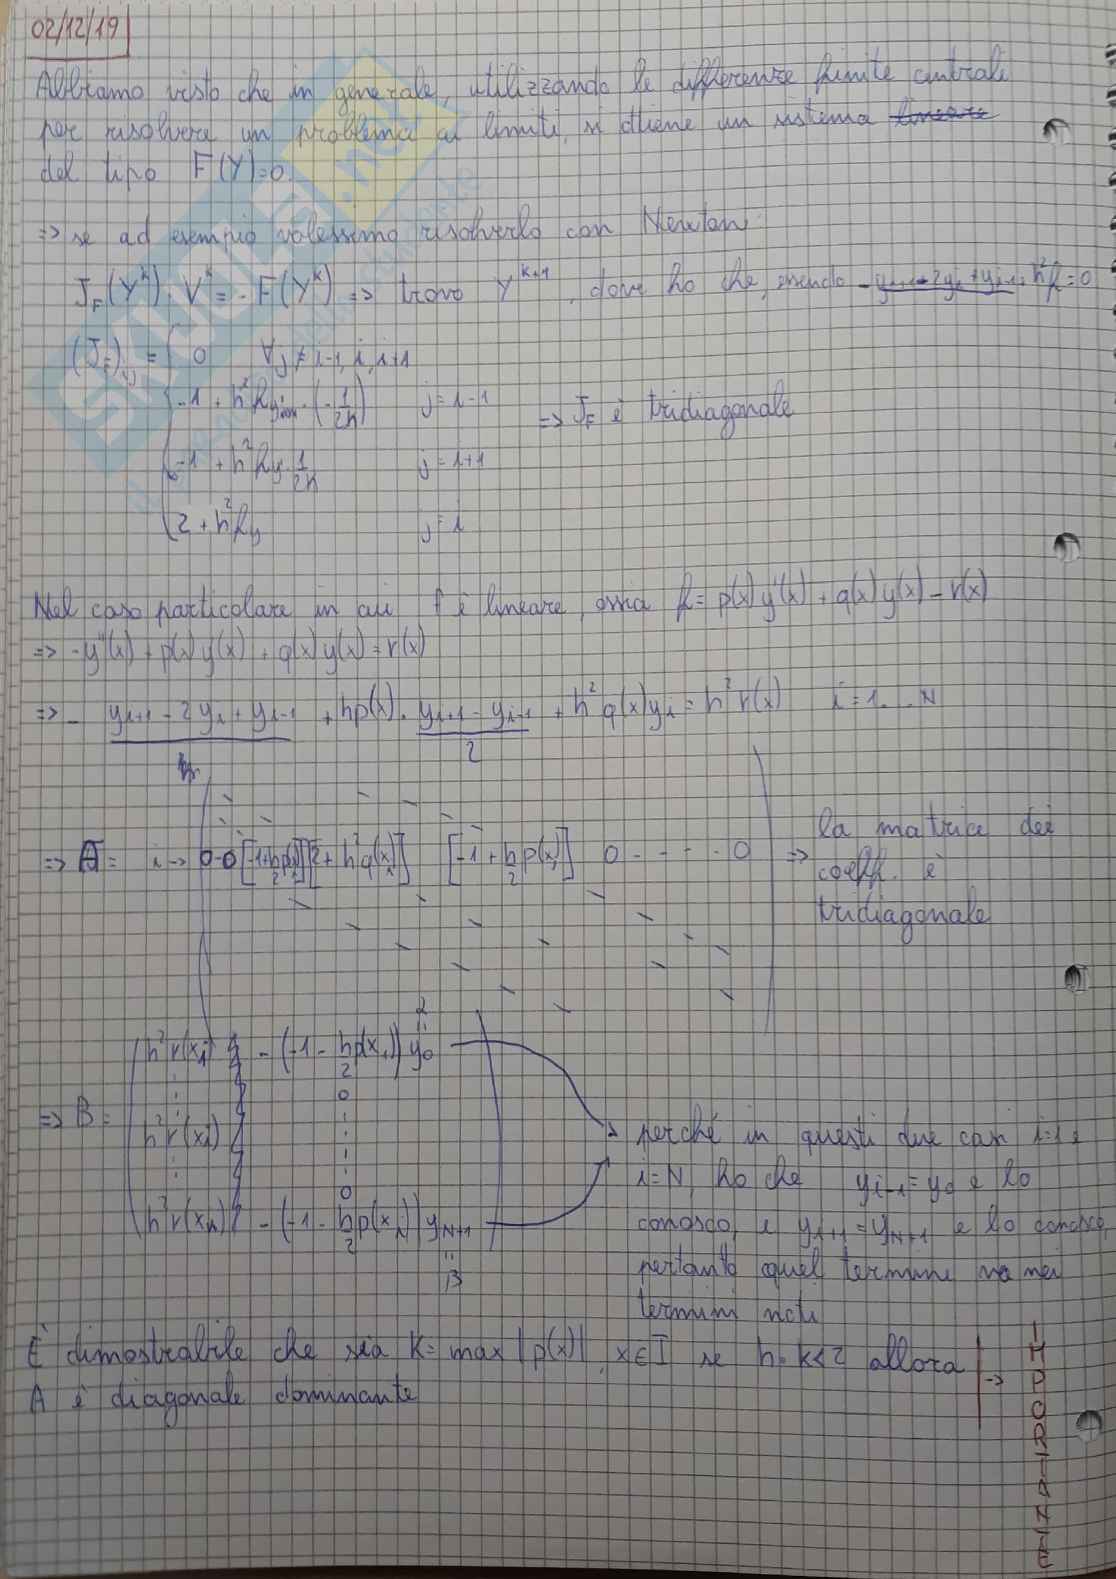 02/12/19
Abbiamo visto che in generale, utilizzando le differenze finite centrali
per risolvere un problema ai limiti, si ottiene un sistema lineare
del tipo F(Y)=0.
=> se ad esempio volessimo risolverlo con Newton:
J_F(Y^k)·V^k = -F(Y^k) => trovo Y^{k+1}, dove ho che, essendo -y_{i+1}+2y_i+y_{i-1}+h²f=0
(J_F)_{ij} = { 0 ∀j ≠ i-1, i, i+1
-1 + h² f_y' · (-1/2h) j=i-1 => J_F è tridiagonale
-1 + h² f_y · 1/2h j=i+1
2 + h² f_y j=i
Nel caso particolare in cui f è lineare, ossia f = p(x)y'(x)+q(x)y(x)-r(x)
=> -y''(x)+p(x)y'(x)+q(x)y(x)=r(x)
=> - y_{i+1}-2y_i+y_{i-1} + hp(x)· (y_{i+1}-y_{i-1})/2 + h²q(x)y_i = h²r(x) i=1...N
=> A = i→ 0-0 [-1+h/2 p(x_i)] [2+h²q(x_i)] [-1+h/2 p(x_i)] 0 - - - - 0 => la matrice dei
coeff. è
tridiagonale
α
=> B = h²r(x_1) - (-1-h/2 p(x_1)) y_0
0
h²r(x_i)
0
h²r(x_N) - (-1-h/2 p(x_N)) y_{N+1}
β
perché in questi due casi i=1 e
i=N, ho che y_{i-1}=y_0 e lo
conosco, e y_{i+1}=y_{N+1} e lo conosco,
pertanto quel termine va nei
termini noti
È dimostrabile che sia K = max |p(x)|, x∈I se h·K<2 allora
A è diagonale dominante
-> IMPORTANTE
SKUOLA.net